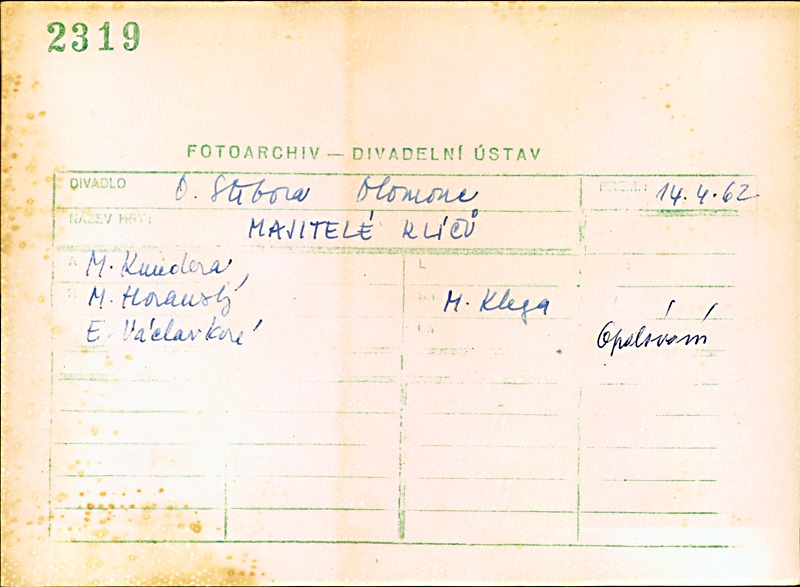 2319
FOTOARCHIV — DIVADELNÍ ÚSTAV
DIVADLO O. Stibora Olomouc PREM.: 14.4.62
NÁZEV HRY: MAJITELÉ KLÍČŮ
A M. Kundera, L
R M. Horanský M. Klega
E. Václavková Opalování